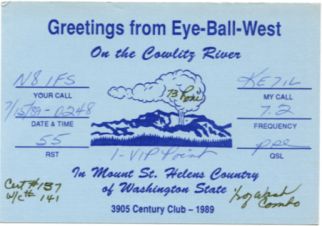 Greetings from Eye-Ball-West
On the Cowlitz River
N8IFS
YOUR CALL
7/15/89 - 0248
DATE & TIME
55
RST
73
KE7IL
MY CALL
7.2
FREQUENCY
pse
QSL
1-VIP Point
In Mount St. Helens Country
of Washington State
3905 Century Club – 1989
Cert # 137
w/ctt 141
Wash
Combo